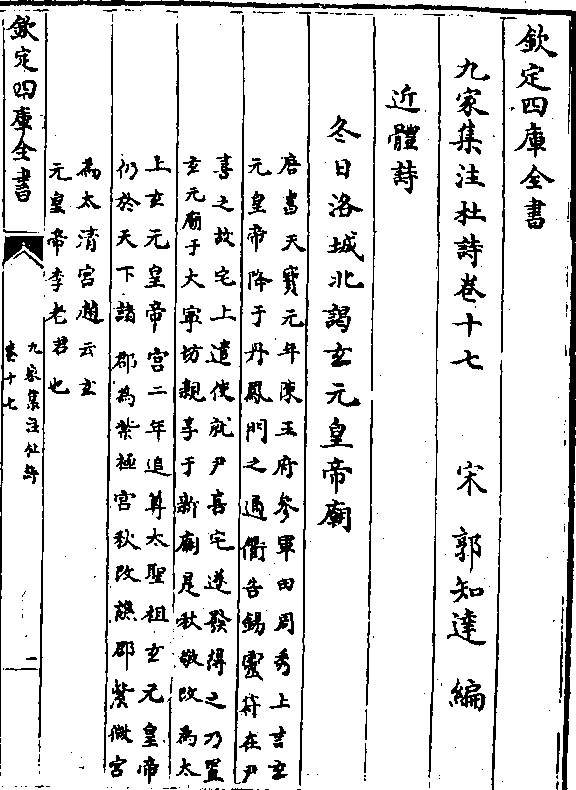 欽定四庫全書
九家集注杜詩卷十七
宋 郭知達 編
近體詩
冬日洛城北謁玄元皇帝廟
唐書天寶元年陳王府參軍田周秀上言玄
元皇帝降于丹鳳門之通衢告錫靈符在尹
喜之故宅上遣使就尹喜宅遂發得之乃置
玄元廟于大寧坊親享于新廟是秋敬改為太
上玄元皇帝宮二年追尊太聖祖玄元皇帝
仍於天下諸郡為紫極宮秋改譙郡紫微宮
為太清宮趙云玄
元皇帝李老君也
欽定四庫全書
九家集注杜詩
卷十七
一